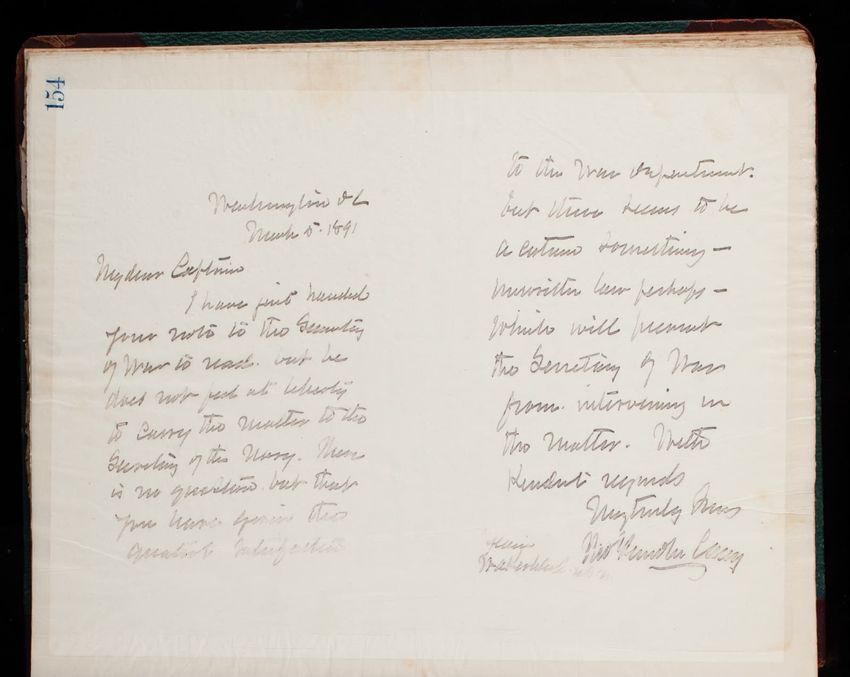 154
Washington DC
March 5. 1891
My dear Captain
I have just handed
your note to the Secretary
of War to read. but he
does not feel at liberty
to carry the matter to the
Secretary of the Navy. There
is no question but that
you have given the
greatest satisfaction
to the War Department.
but there seems to be
a certain something –
unwritten law perhaps –
which will prevent
the Secretary of War
from intervening in
the matter. With
Kindest regards
Very truly Yours
Thos Lincoln Casey